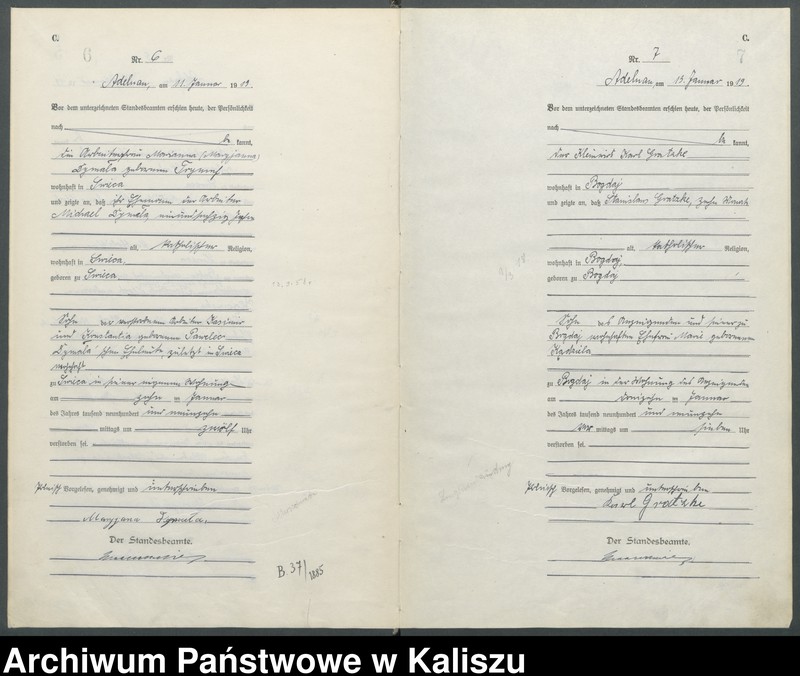 C.
Nr. 6
Adelnau, am 11. Januar 1919.
Vor dem unterzeichneten Standesbeamten erschien heute, der Persönlichkeit
nach
be kannt,
die Arbeiterfrau Marianna (Maryjanna)
Dymala geborenen
wohnhaft in Swieca
und zeigte an, daß ihr Ehemann der Arbeiter
Michael Dymala, einundsechzig Jahre
alt, katholischer Religion,
wohnhaft in Swieca
geboren zu Swieca
Sohn der verstorbenen Arbeiter Kasimir
und Konstantia geborenen Pawelec-
Dymala'schen Eheleute zuletzt in Swieca
wohnhaft
zu Swieca in seiner eigenen Wohnung
am zehn ten Januar
des Jahres tausend neunhundert und neunzehn
mittags um zwölf Uhr
verstorben sei.
Polnisch Vorgelesen, genehmigt und unterschrieben
Maryjana Dymala,
Der Standesbeamte.
B. 37/1885
C.
7
Nr. 7
Adelnau, am 13. Januar 1919.
Vor dem unterzeichneten Standesbeamten erschien heute, der Persönlichkeit
nach
be kannt,
der Kleinwirt Karl Gratzke
wohnhaft in Bogdaj
und zeigte an, daß Stanislaus Gratzke, zehn Monate
alt, katholischer Religion,
wohnhaft in Bogdaj,
geboren zu Bogdaj
Sohn des Anzeigenden und seiner zu
Bogdaj wohnhaften Ehefrau Marie geborenen
zu Bogdaj in der Wohnung des Anzeigenden
am ten Januar
des Jahres tausend neunhundert und neunzehn
Vor mittags um sieben Uhr
verstorben sei.
Polnisch Vorgelesen, genehmigt und unterschrieben
Karl Gratzke
Der Standesbeamte.
Archiwum Państwowe w Kaliszu